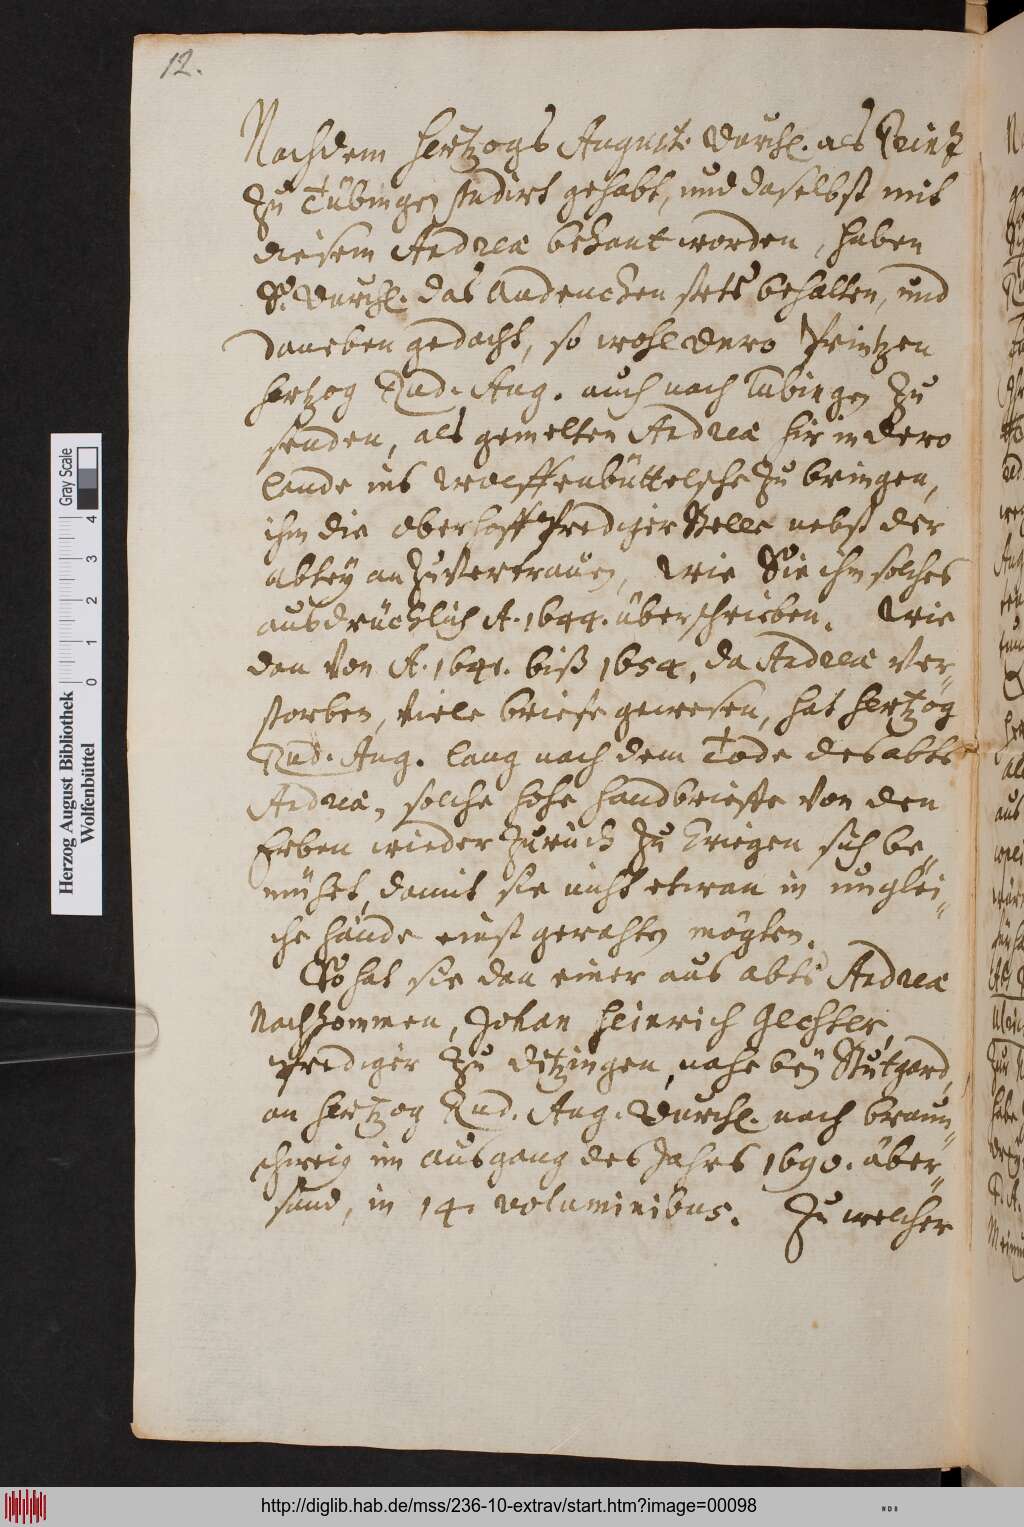 12.
Nachdem Hertzogs August. Durchl. als Printz
Zu Tübingen studirt gehabt, und daselbst mit
diesem Andreae bekant worden, haben
S. Durchl. das Andencken stets behalten, und
daneben gedacht, so wohl dero Printzen
Hertzog Rud. Aug. auch nach Tübingen Zu
senden, als gemelten Andreae hir in dero
Lande ins Wolffenbüttelsche Zu bringen,
ihm die Oberhoff Prediger Stelle nebst der
Abtey anZuvertrauen, Wie Sie ihm solches
ausdrücklich A. 1644. überschrieben. Wie
dan Von A. 1641. biß 1654, da Andreae Ver-
storben, Viele briefe gewesen, hat Hertzog
Rud. Aug. lang nach dem Tode des abts
Andreae, solche hohe Handbrieffe Von den
Erben wieder Zurück Zu kriegen sich be-
mühet, damit sie nicht etwan in unglei-
che hände einst gerahten mögten.
So hat sie dan einer aus abts Andreae
Nachkommen, Johan Heinrich
Prediger Zu Ditzingen, nahe bey Stutgard,
an Hertzog Rud. Aug. Durchl. nach braun-
schweig im ausgang des Jahrs 1690. über-
sand, in 14. voluminibus. Zu welcher
Gray Scale
0 1 2 3 4
Herzog August Bibliothek
Wolfenbüttel
http://diglib.hab.de/mss/236-10-extrav/start.htm?image=00098